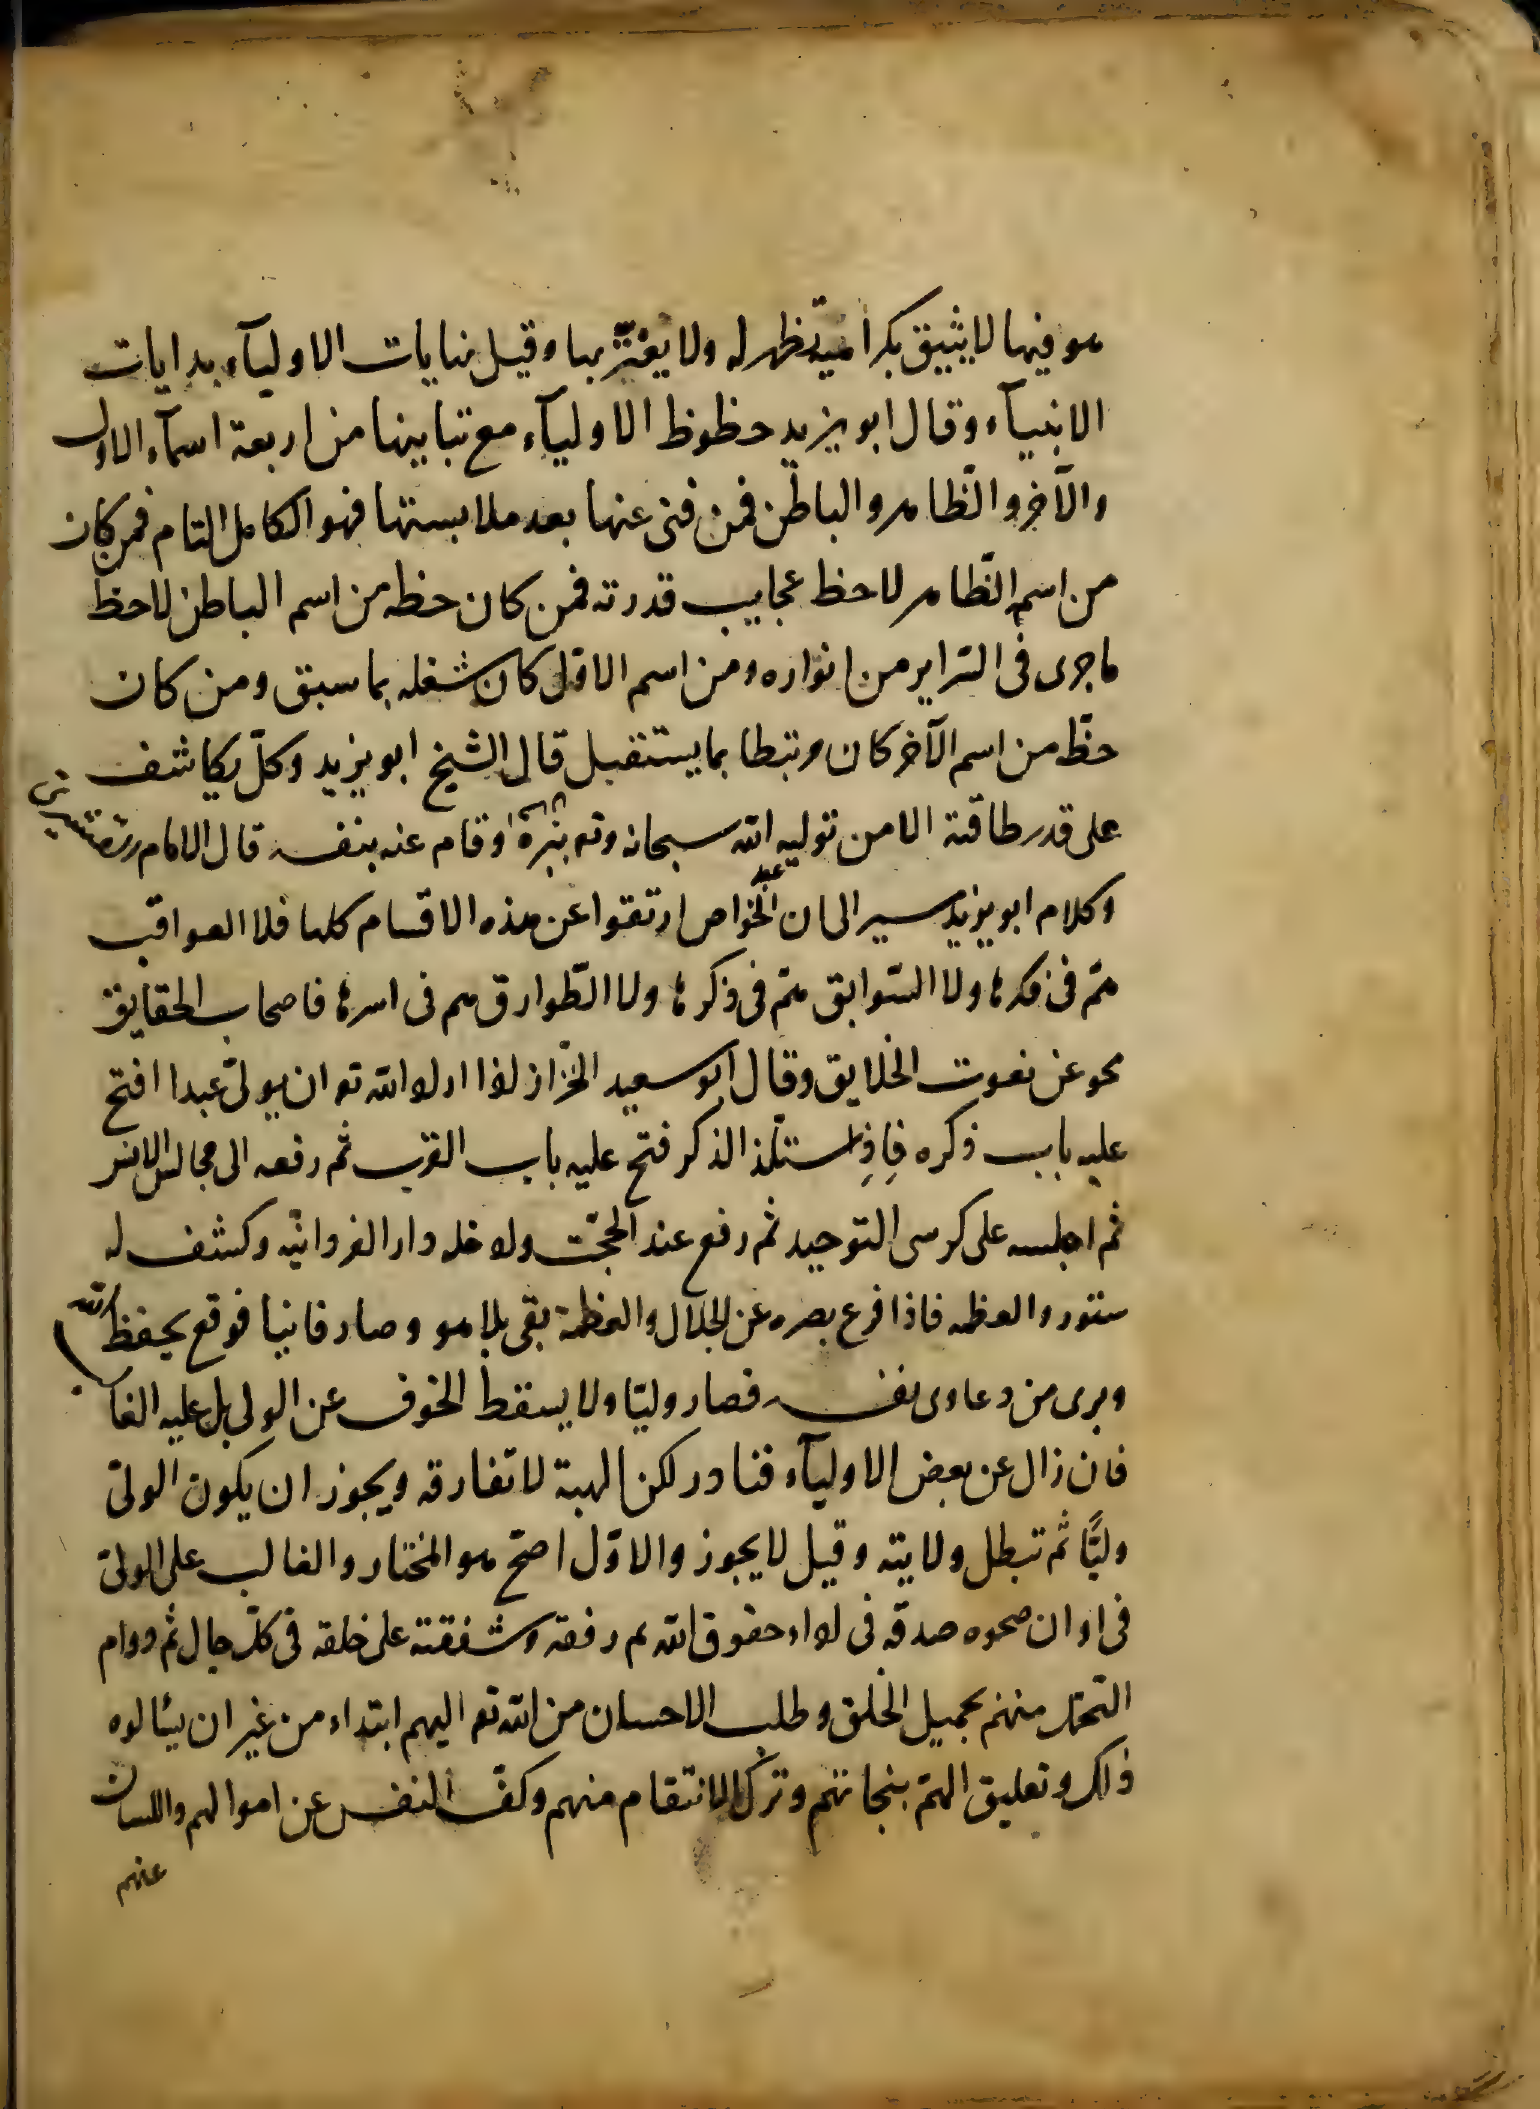 هو فيها لا يثيق بكرامية تظهر له ولا يغتر بها وقيل نهايات الاوليآء بدايات
الانبيآء وقال ابو يزيد حظوظ الاوليآء مع تباينها من اربعة اسمآء الاول
والآخر والظاهر والباطن فمن فنى عنها بعد ملابستها فهو الكامل التام فمن كان
من اسم الظاهر لاحظ عجايب قدرته فمن كان حظه من اسم الباطن لاحظ
ما جرى فى السراير من انواره ومن اسم الاول كان شغله بما سبق ومن كان
حظه من اسم الآخر كان مرتبطا بما يستقبل قال الشيخ ابو يزيد وكل يكاشف
على قدر طاقته الا من توليه الله سبحانه وتع ببره وقام عنه بنفسه قال الامام القشيرى
وكلام ابو يزيد يسير الى ان الخواص عبد ارتقوا عن هذه الاقسام كلها فلا العواقب
هم فى فكرها ولا السوابق هم فى ذكرها ولا الطوارق هم فى اسرها فاصحاب الحقايق
محو عن نعوت الخلايق وقال ابو سعيد الخراز اذا اراد الله تع ان يولى عبدا افتح
عليه باب ذكره فاذا استلذ الذكر فتح عليه باب القرب ثم رفعه الى مجالس الانس
ثم اجلسه على كرسى التوحيد ثم رفع عند الحجب وادخله دار الفردانيه وكشف له
ستور والعظمه فاذا فرع بصره عن الجلال والعظمة بقى بلا هو وصار فانيا فوقع بحفظ الله
وبرى من دعاوى نفسه فصار وليا ولا يسقط الخوف عن الولى بل عليه الغا
فان زال عن بعض الاوليآء فنادر لكن الهبة لا تفارقه ويجوز ان يكون الولى
وليًّا ثم تبطل ولايته وقيل لا يجوز والاول اصح هو المختار والغالب على الولى
فى اوان صحوه صدقه فى اداء حقوق الله ثم رفقه وشفقته على خلقه فى كل حال ثم دوام
التحمل منهم بجميل الخلق وطلب الاحسان من الله تع اليهم ابتداء من غير ان يسٔالوه
ذلك وتعليق الهم بنجاتهم وترك الانتقام منهم وكف النفس عن اموالهم واللسان
عنهم